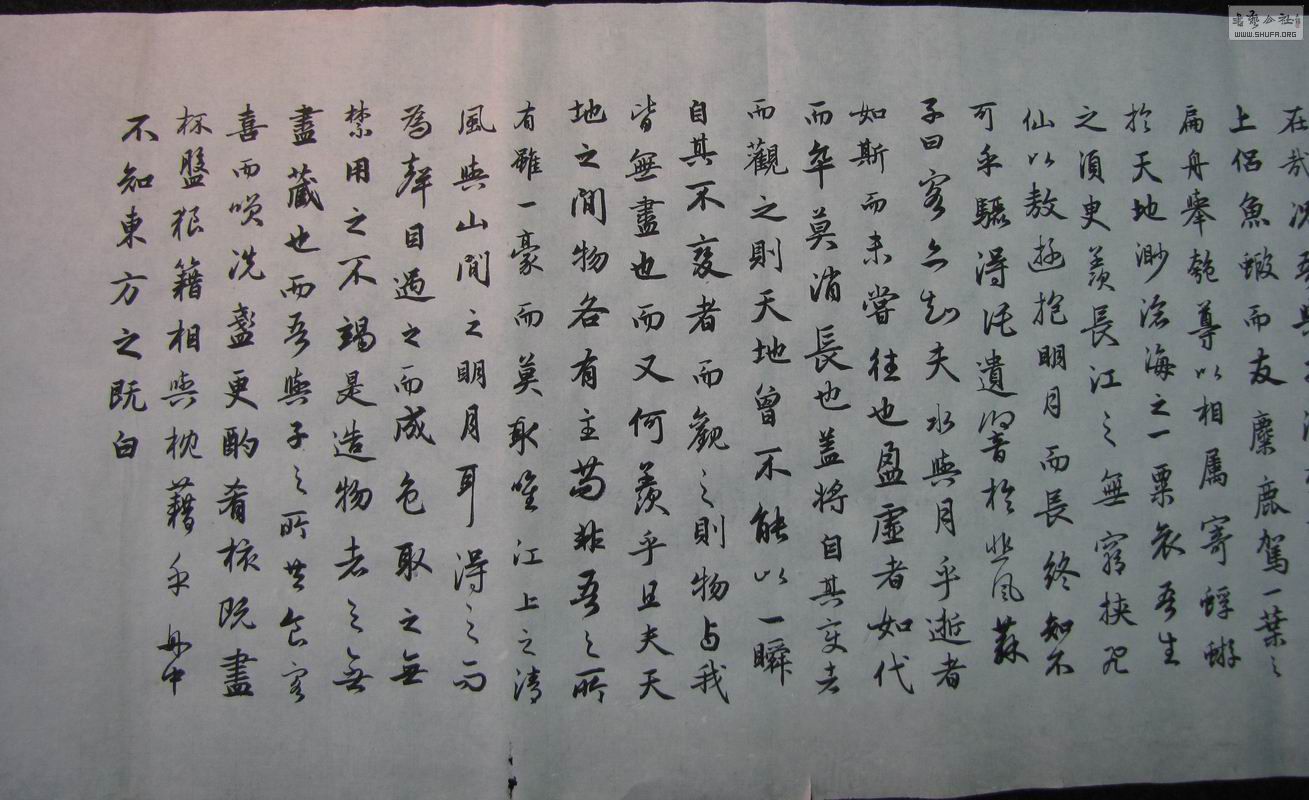 在哉況吾與
上侶魚蝦而友麋鹿駕一葉之
扁舟舉匏尊以相屬寄蜉蝣
於天地渺滄海之一粟哀吾生
之須臾羨長江之無窮挾飛
仙以敖遊抱明月而長終知不
可乎驟得託遺響於悲風蘇
子曰客亦知夫水與月乎逝者
如斯而未嘗往也盈虛者如代
而卒莫消長也蓋將自其變者
而觀之則天地曾不能以一瞬
自其不變者而觀之則物與我
皆無盡也而又何羨乎且夫天
地之間物各有主苟非吾之所
有雖一豪而莫取唯江上之清
風與山間之明月耳得之而
為聲目遇之而成色取之無
禁用之不竭是造物者之無
盡藏也而吾與子之所共食客
喜而咲洗盞更酌肴核既盡
杯盤狼籍相與枕藉乎舟中
不知東方之既白
書藝公社
WWW.SHUFA.ORG